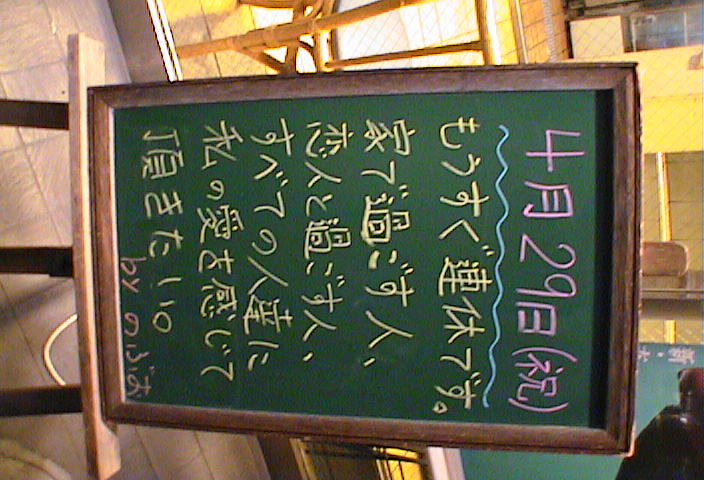 4月29日(祝)
もうすぐ連休です。
家で過ごす人、
恋人と過ごす人、
すべての人達に
私の愛を感じて
頂きたい。
by のぶお
新・